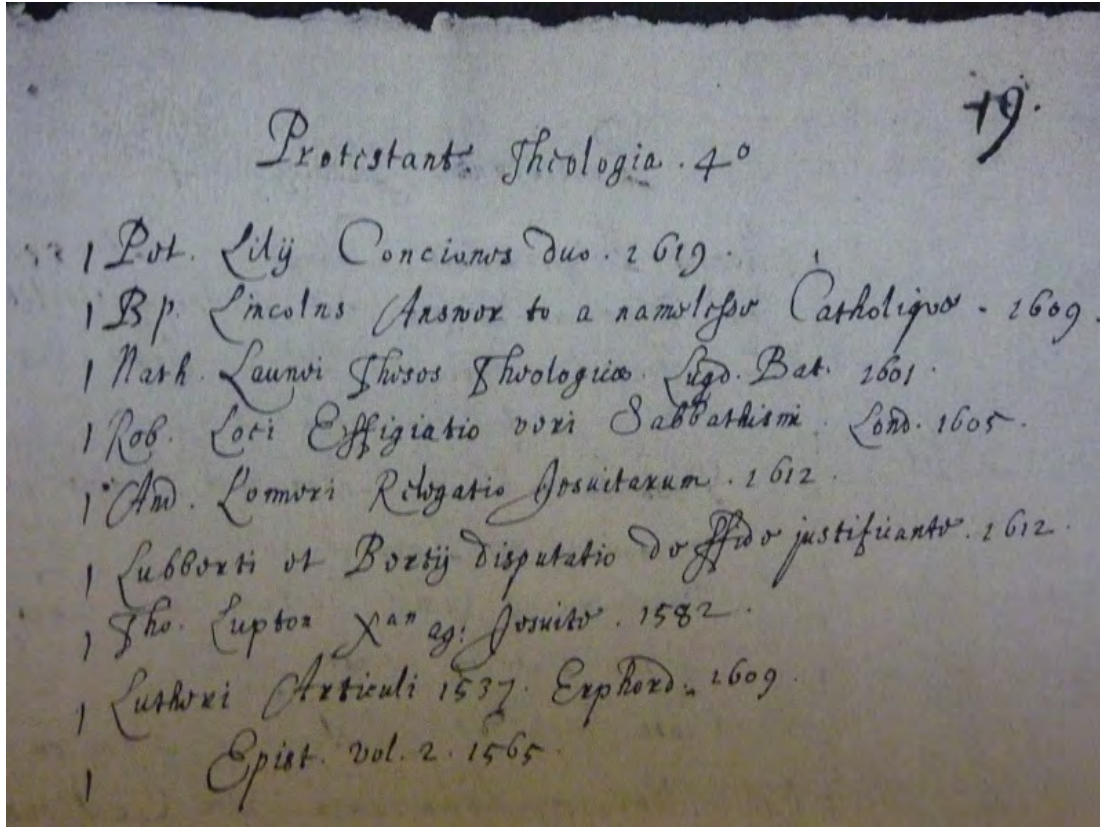 19.
Protestant. Theologia. 4o
1 Pet. Lilij Conciones duo. 1619.
1 Bp. Lincolns Answer to a namelesse Catholique. 1609.
1 Nath. Launei Theses Theologicæ. Lugd. Bat. 1601.
1 Rob. Loei Effigiatio veri Sabbathismi. Lond. 1605.
1 And. Lomeri Relegatio Jesuitarum. 1612.
1 Lubberti et Bertij disputatio de ffide justificante. 1612.
1 Tho. Lupton Xan ag: Jesuite. 1582.
1 Lutheri Articuli 1537. Erphord. 1609.
1 Epist. vol. 2. 1565.